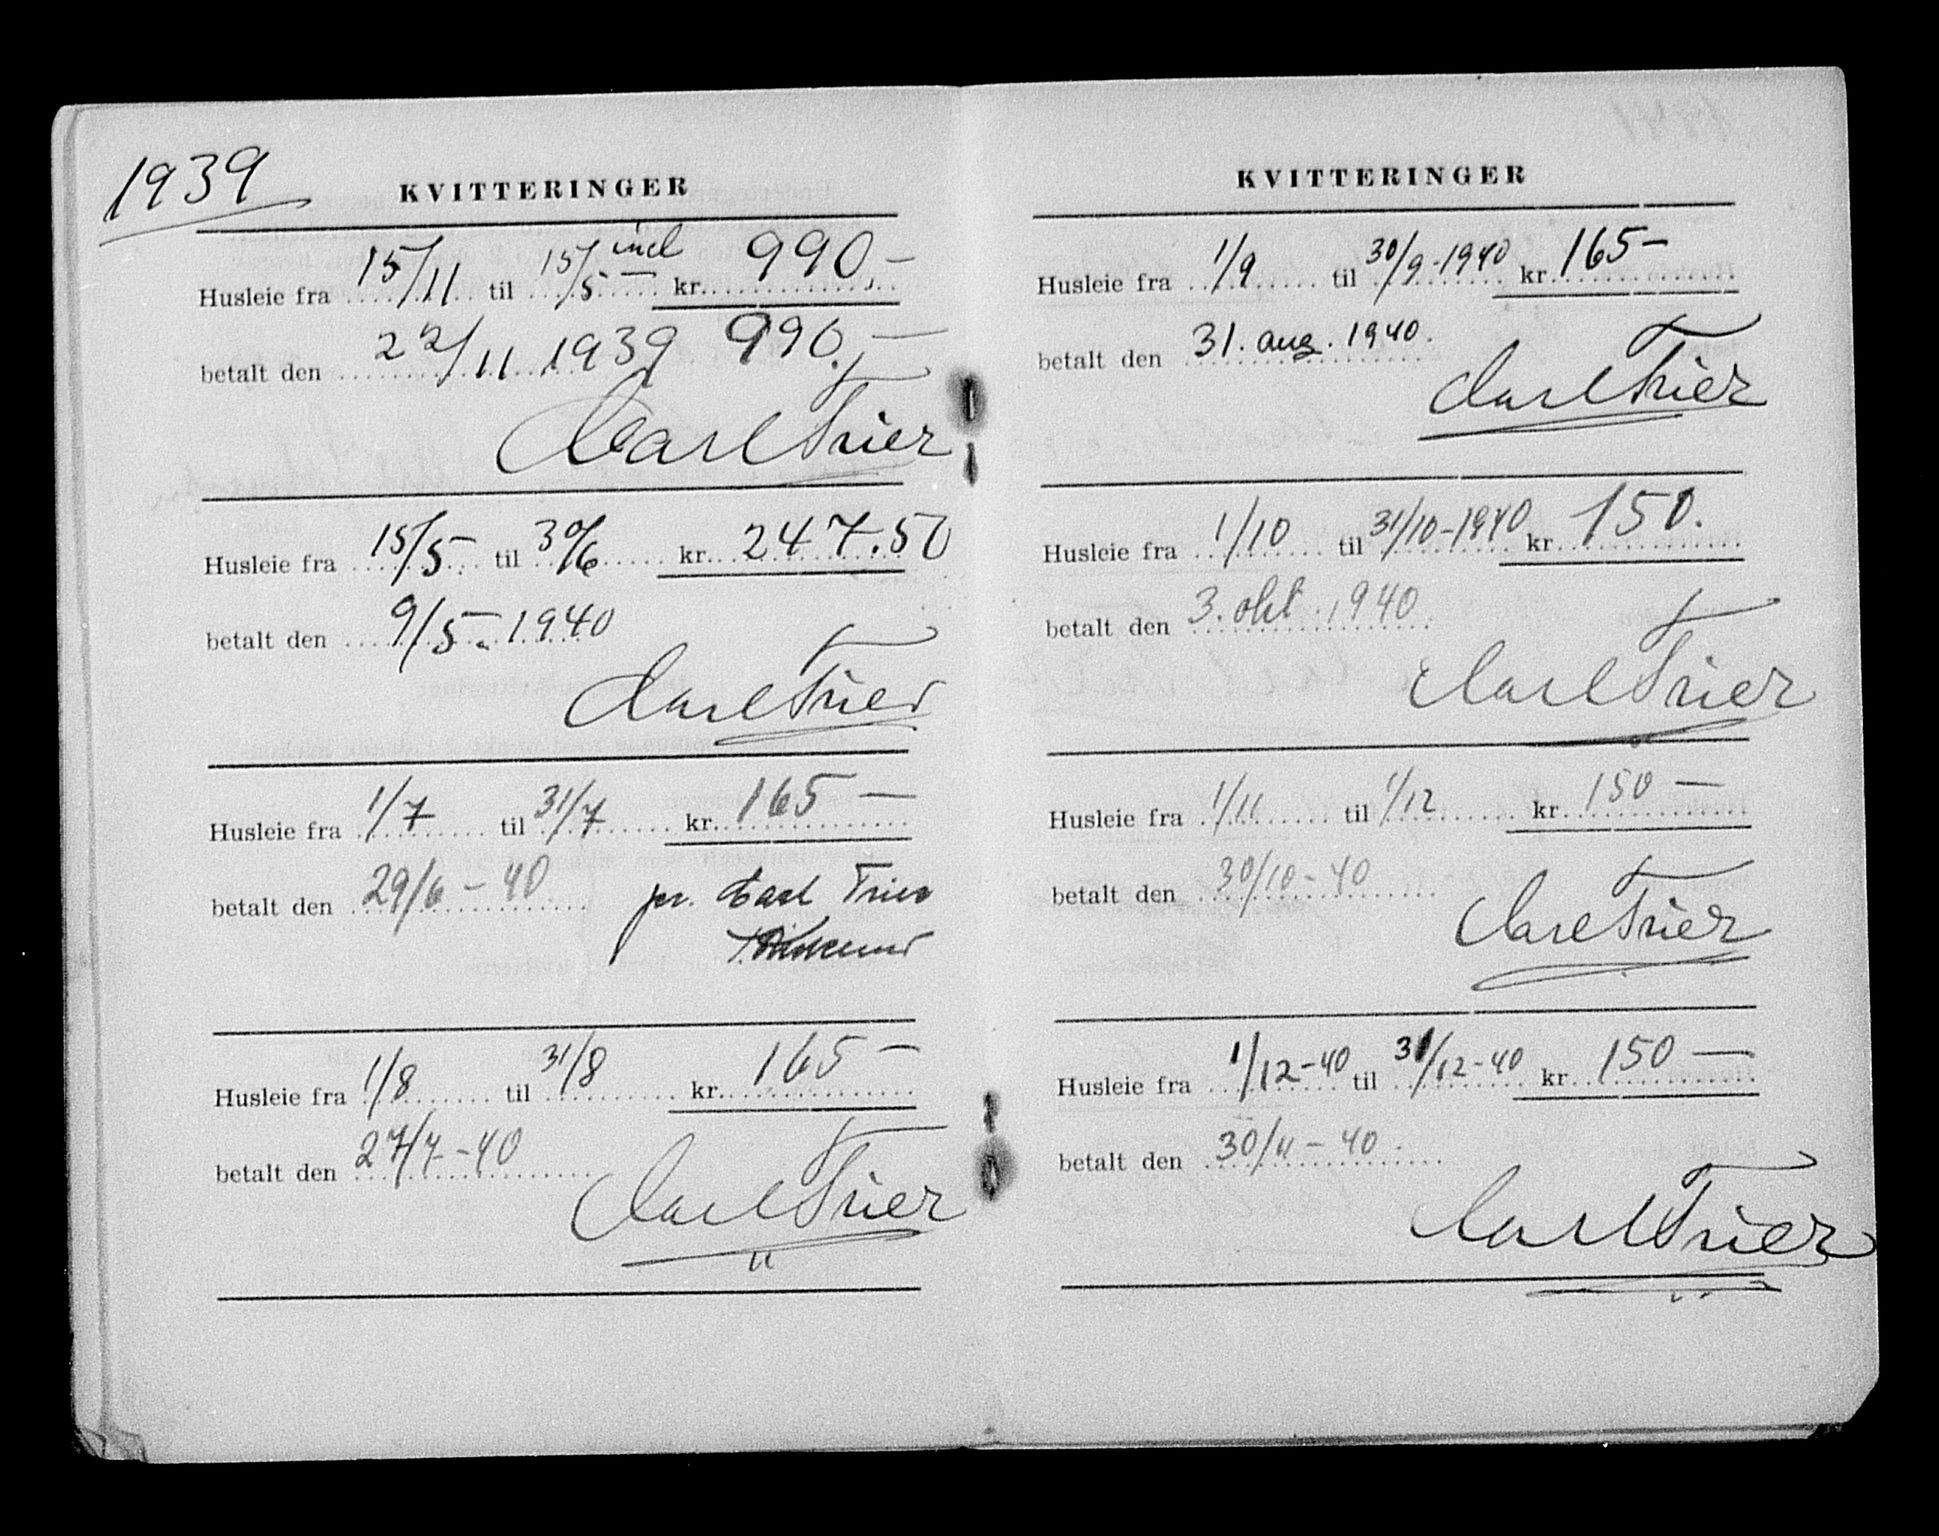 1939
KVITTERINGER
Husleie fra 15/11 til 15/5 incl kr. 990.-
betalt den 22/11 1939 990.-
Carl Trier
Husleie fra 15/5 til 30/6 kr. 247.50
betalt den 9/5-1940
Carl Trier
Husleie fra 1/7 til 31/7 kr. 165 -
betalt den 29/6 - 40 pr. Carl Trier
Husleie fra 1/8 til 31/8 kr. 165 -
betalt den 27/7 - 40
Carl Trier
KVITTERINGER
Husleie fra 1/9 til 30/9-1940 kr. 165-
betalt den 31. aug. 1940.
Carl Trier
Husleie fra 1/10 til 31/10-1940 kr. 150.
betalt den 3. okt. 1940
Carl Trier
Husleie fra 1/11 til 1/12 kr. 150 -
betalt den 30/10-40
Carl Trier
Husleie fra 1/12-40 til 31/12-40 kr. 150 -
betalt den 30/11 - 40.
Carl Trier